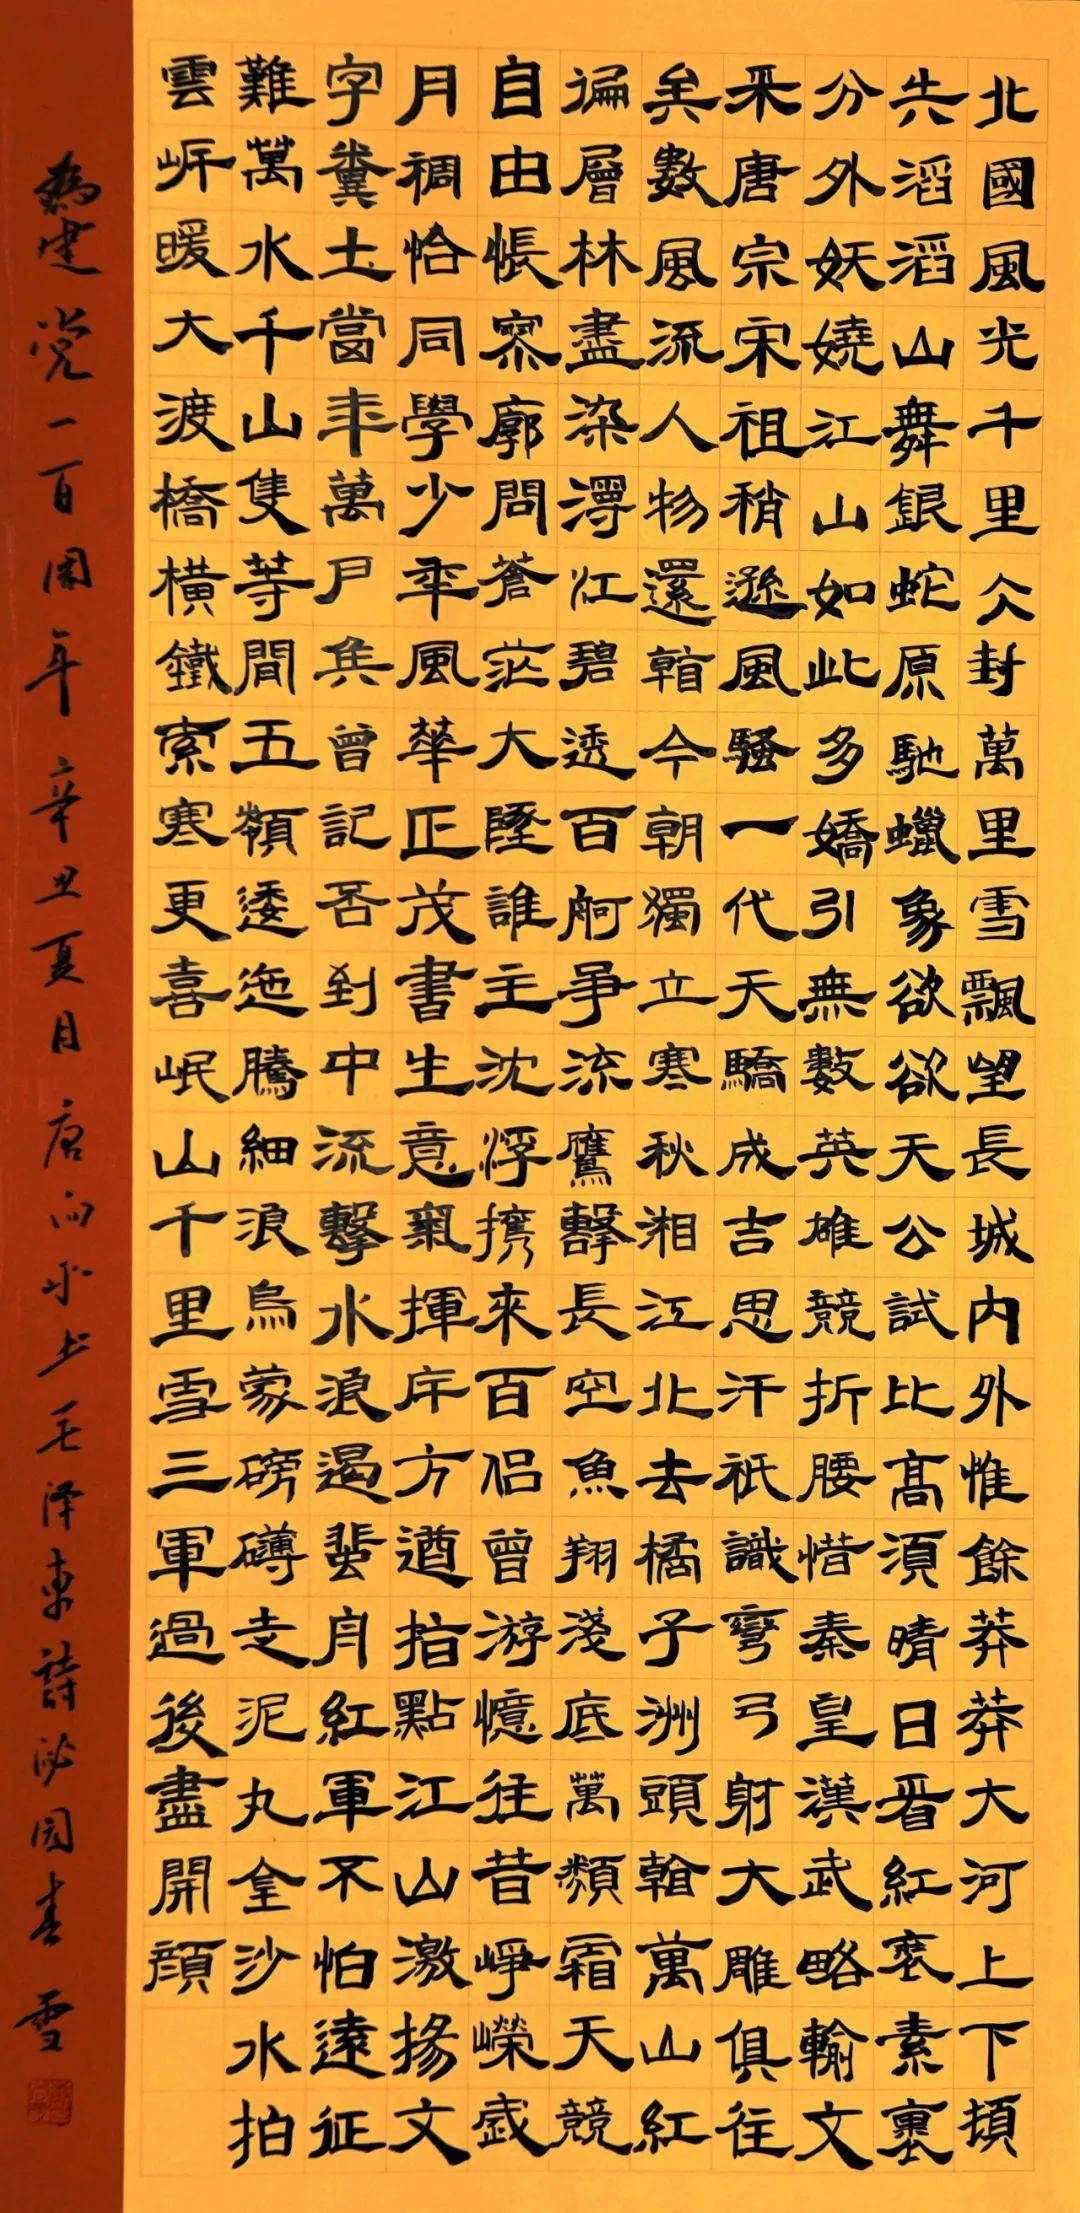 北國風光千里仌封萬里雪飄望長城內外惟餘莽莽大河上下頓
失滔滔山舞銀蛇原馳蠟象欲欲天公試比高須晴日看紅裝素裹
分外妖嬈江山如此多嬌引無數英雄競折腰惜秦皇漢武略輸文
采唐宗宋祖稍遜風騷一代天驕成吉思汗祇識彎弓射大雕俱往
矣數風流人物還看今朝獨立寒秋湘江北去橘子洲頭看萬山紅
徧層林盡染漫江碧透百舸爭流鷹擊長空魚翔淺底萬類霜天競
自由悵寥廓問蒼茫大地誰主沈浮携來百侶曾游憶往昔崢嶸歲
月稠恰同學少年風華正茂書生意氣揮斥方遒指點江山激揚文
字糞土當年萬戶侯曾記否到中流擊水浪遏飛舟紅軍不怕遠征
難萬水千山隻等閒五嶺逶迤騰細浪烏蒙磅礴走泥丸金沙水拍
雲崖暖大渡橋橫鐵索寒更喜岷山千里雪三軍過後盡開顏
為建党一百周年辛丑夏月唐向毛泽東詩沁园春雪